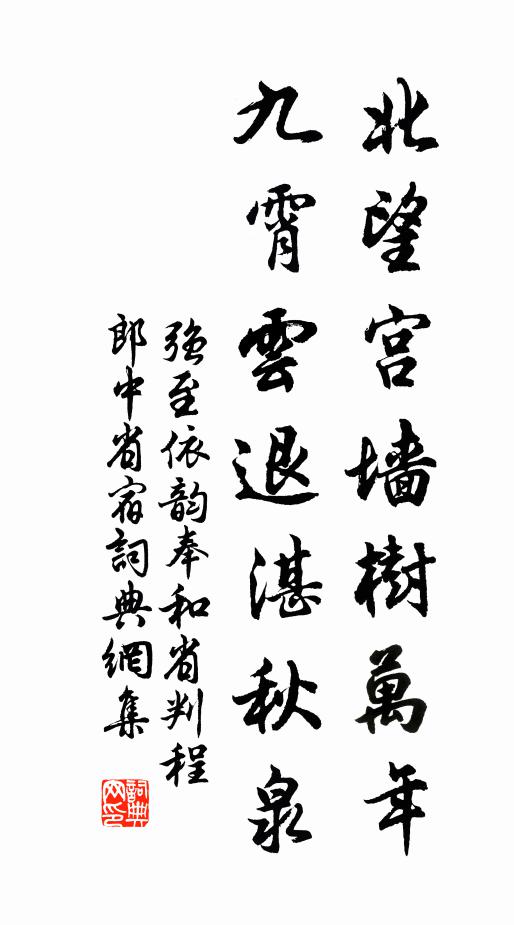 北望宫墙樹萬年
九霄雲退湛秋泉
强至依韵奉和省判程
郎中省宿詞典網集
詞典网印